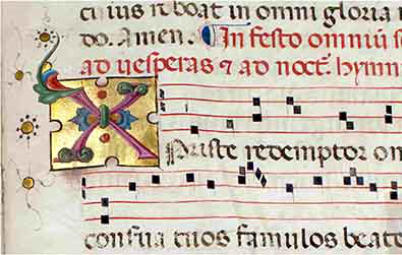 ci ius rt boat in omni gloria
do. Amen. In festo omniũ s
ad uesperas ⁊ ad noct̃. hymn
XPriste redemptor om
conſua tuos famulos beate